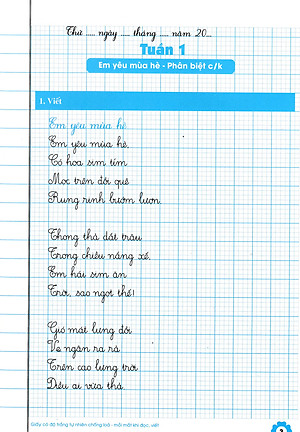 Thứ ..... ngày ..... tháng ..... năm 20...
Tuần 1
Em yêu mùa hè - Phân biệt c/k
1. Viết
Em yêu mùa hè
Em yêu mùa hè,
Có hoa sim tím
Mọc trên đồi quê
Rung rinh bướm lượn.
Thong thả dắt trâu
Trong chiều nắng xế,
Em hái sim ăn
Trời, sao ngọt thế!
Gió mát lưng đồi
Ve ngân ra rả
Trên cao lưng trời
Diều ai vừa thả.
Giấy có độ trắng tự nhiên chống loá - mỏi mắt khi đọc, viết